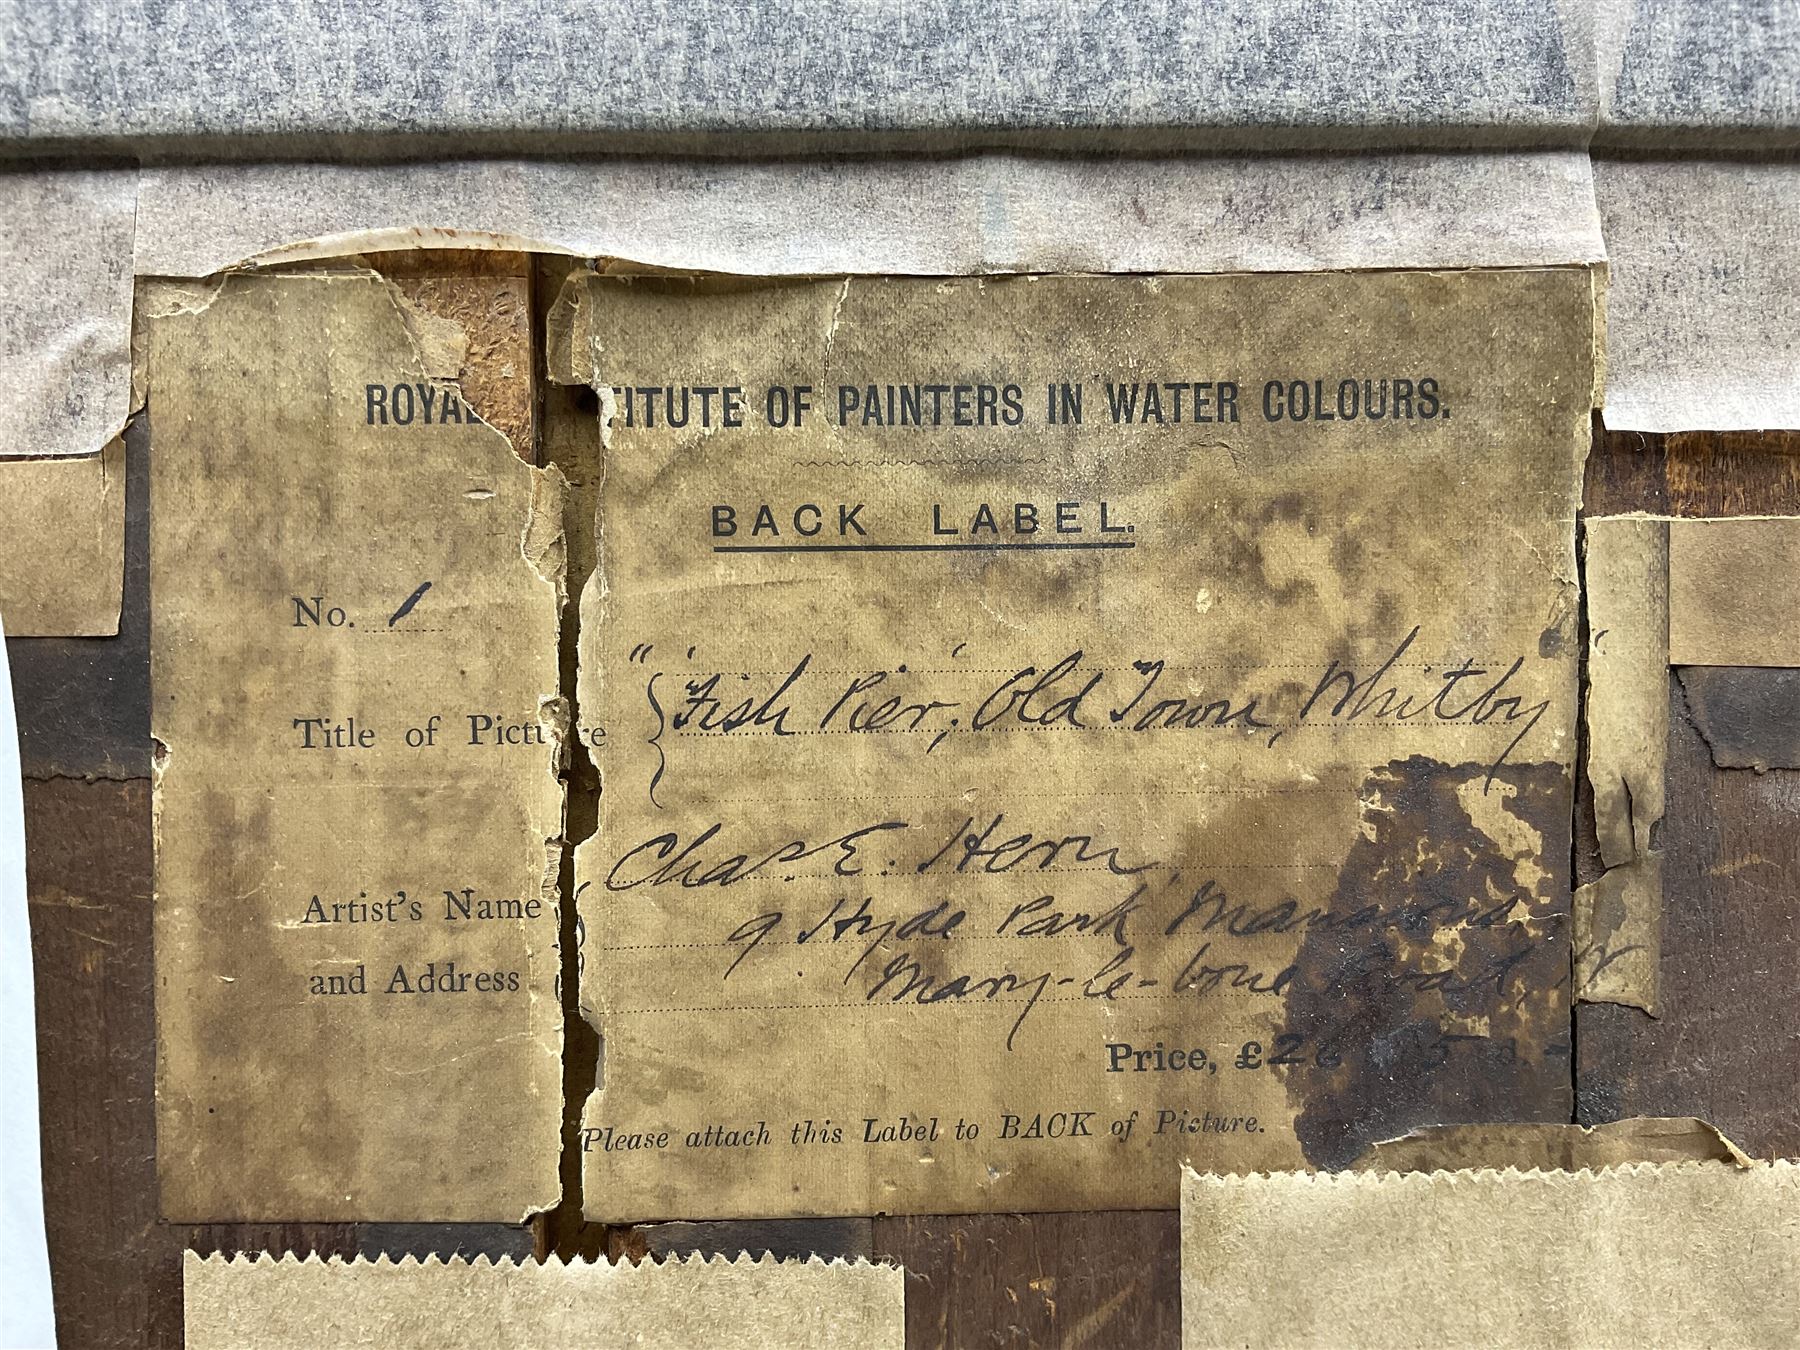 ROYAL TITUTE OF PAINTERS IN WATER COLOURS.
BACK LABEL.
No. 1
Title of Picture "'Fish Pier', Old Town, Whitby"
Chas. E. Hern,
Artist's Name 9 Hyde Park Mansions,
and Address Mary-le-bone Road, W
Price, £26 5
Please attach this Label to BACK of Picture.